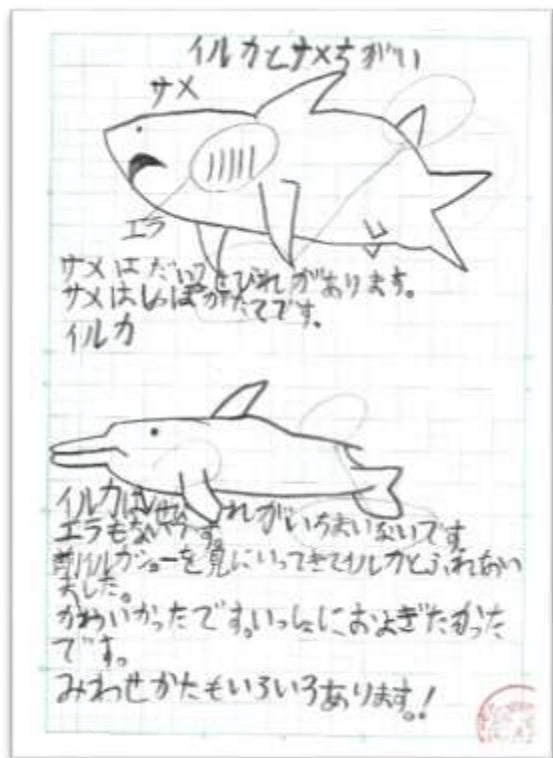 イルカとサメちがい
サメ
エラ
サメはだいつせびれがあります。
サメはしっぽがたてです。
イルカ
イルカはせびれがいちまいないです
エラもないです。
イルカショーを見にいってきてイルカとふれあい
ました。
かわいかったです。いっしょにおよぎたかった
です。
みわせかたもいろいろあります!